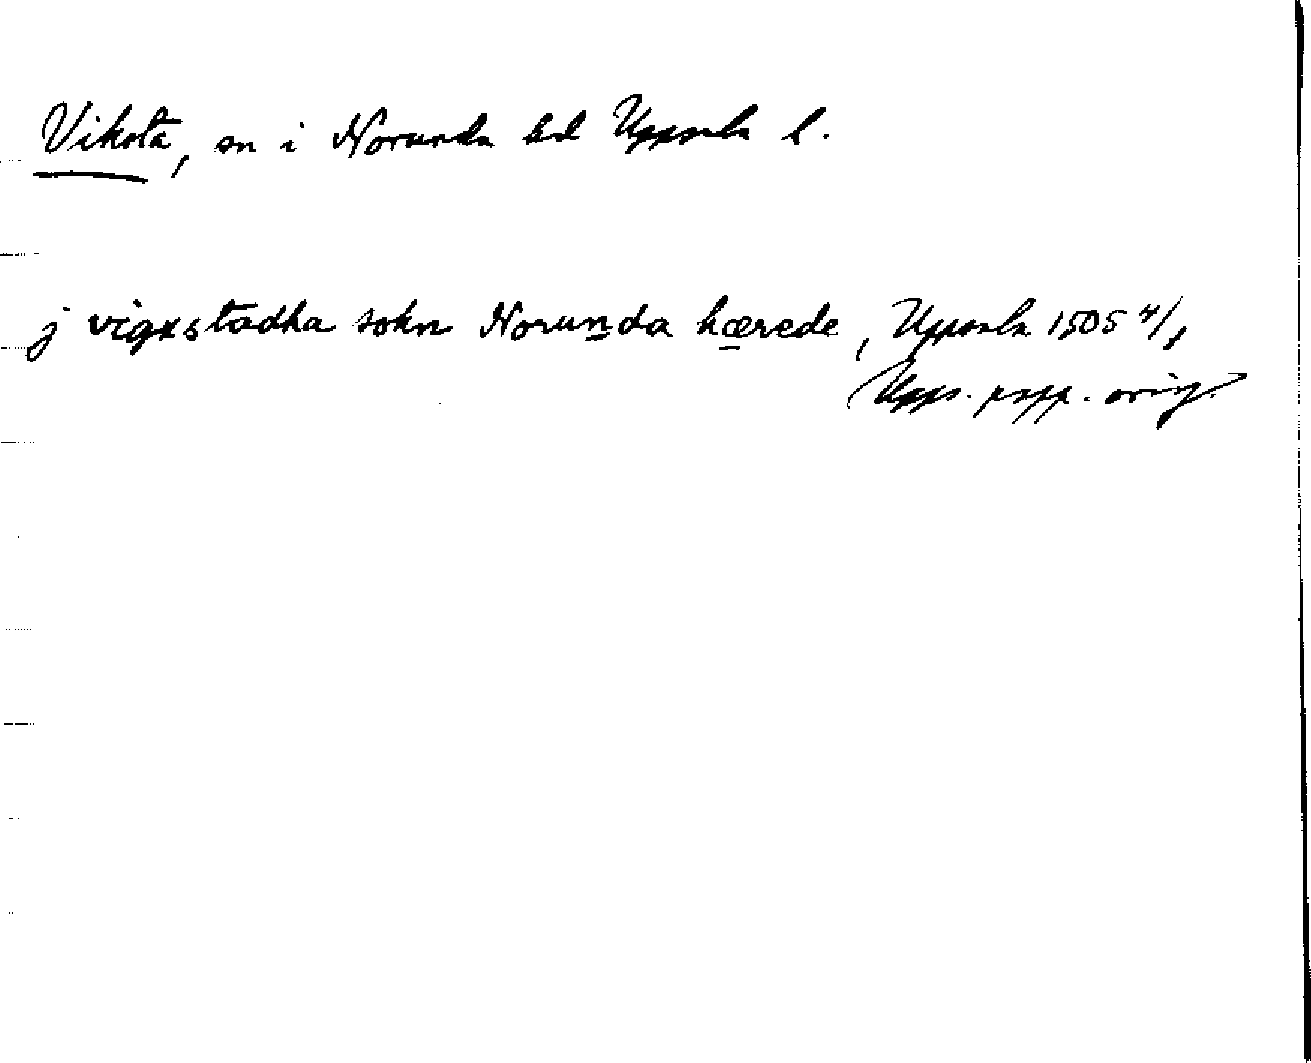 Viksta, sn i Norunda hd Uppsala l.
j vigxstadha sokn Norunda hærede, Uppsala 1505 4/1
Upps. papp. orig.